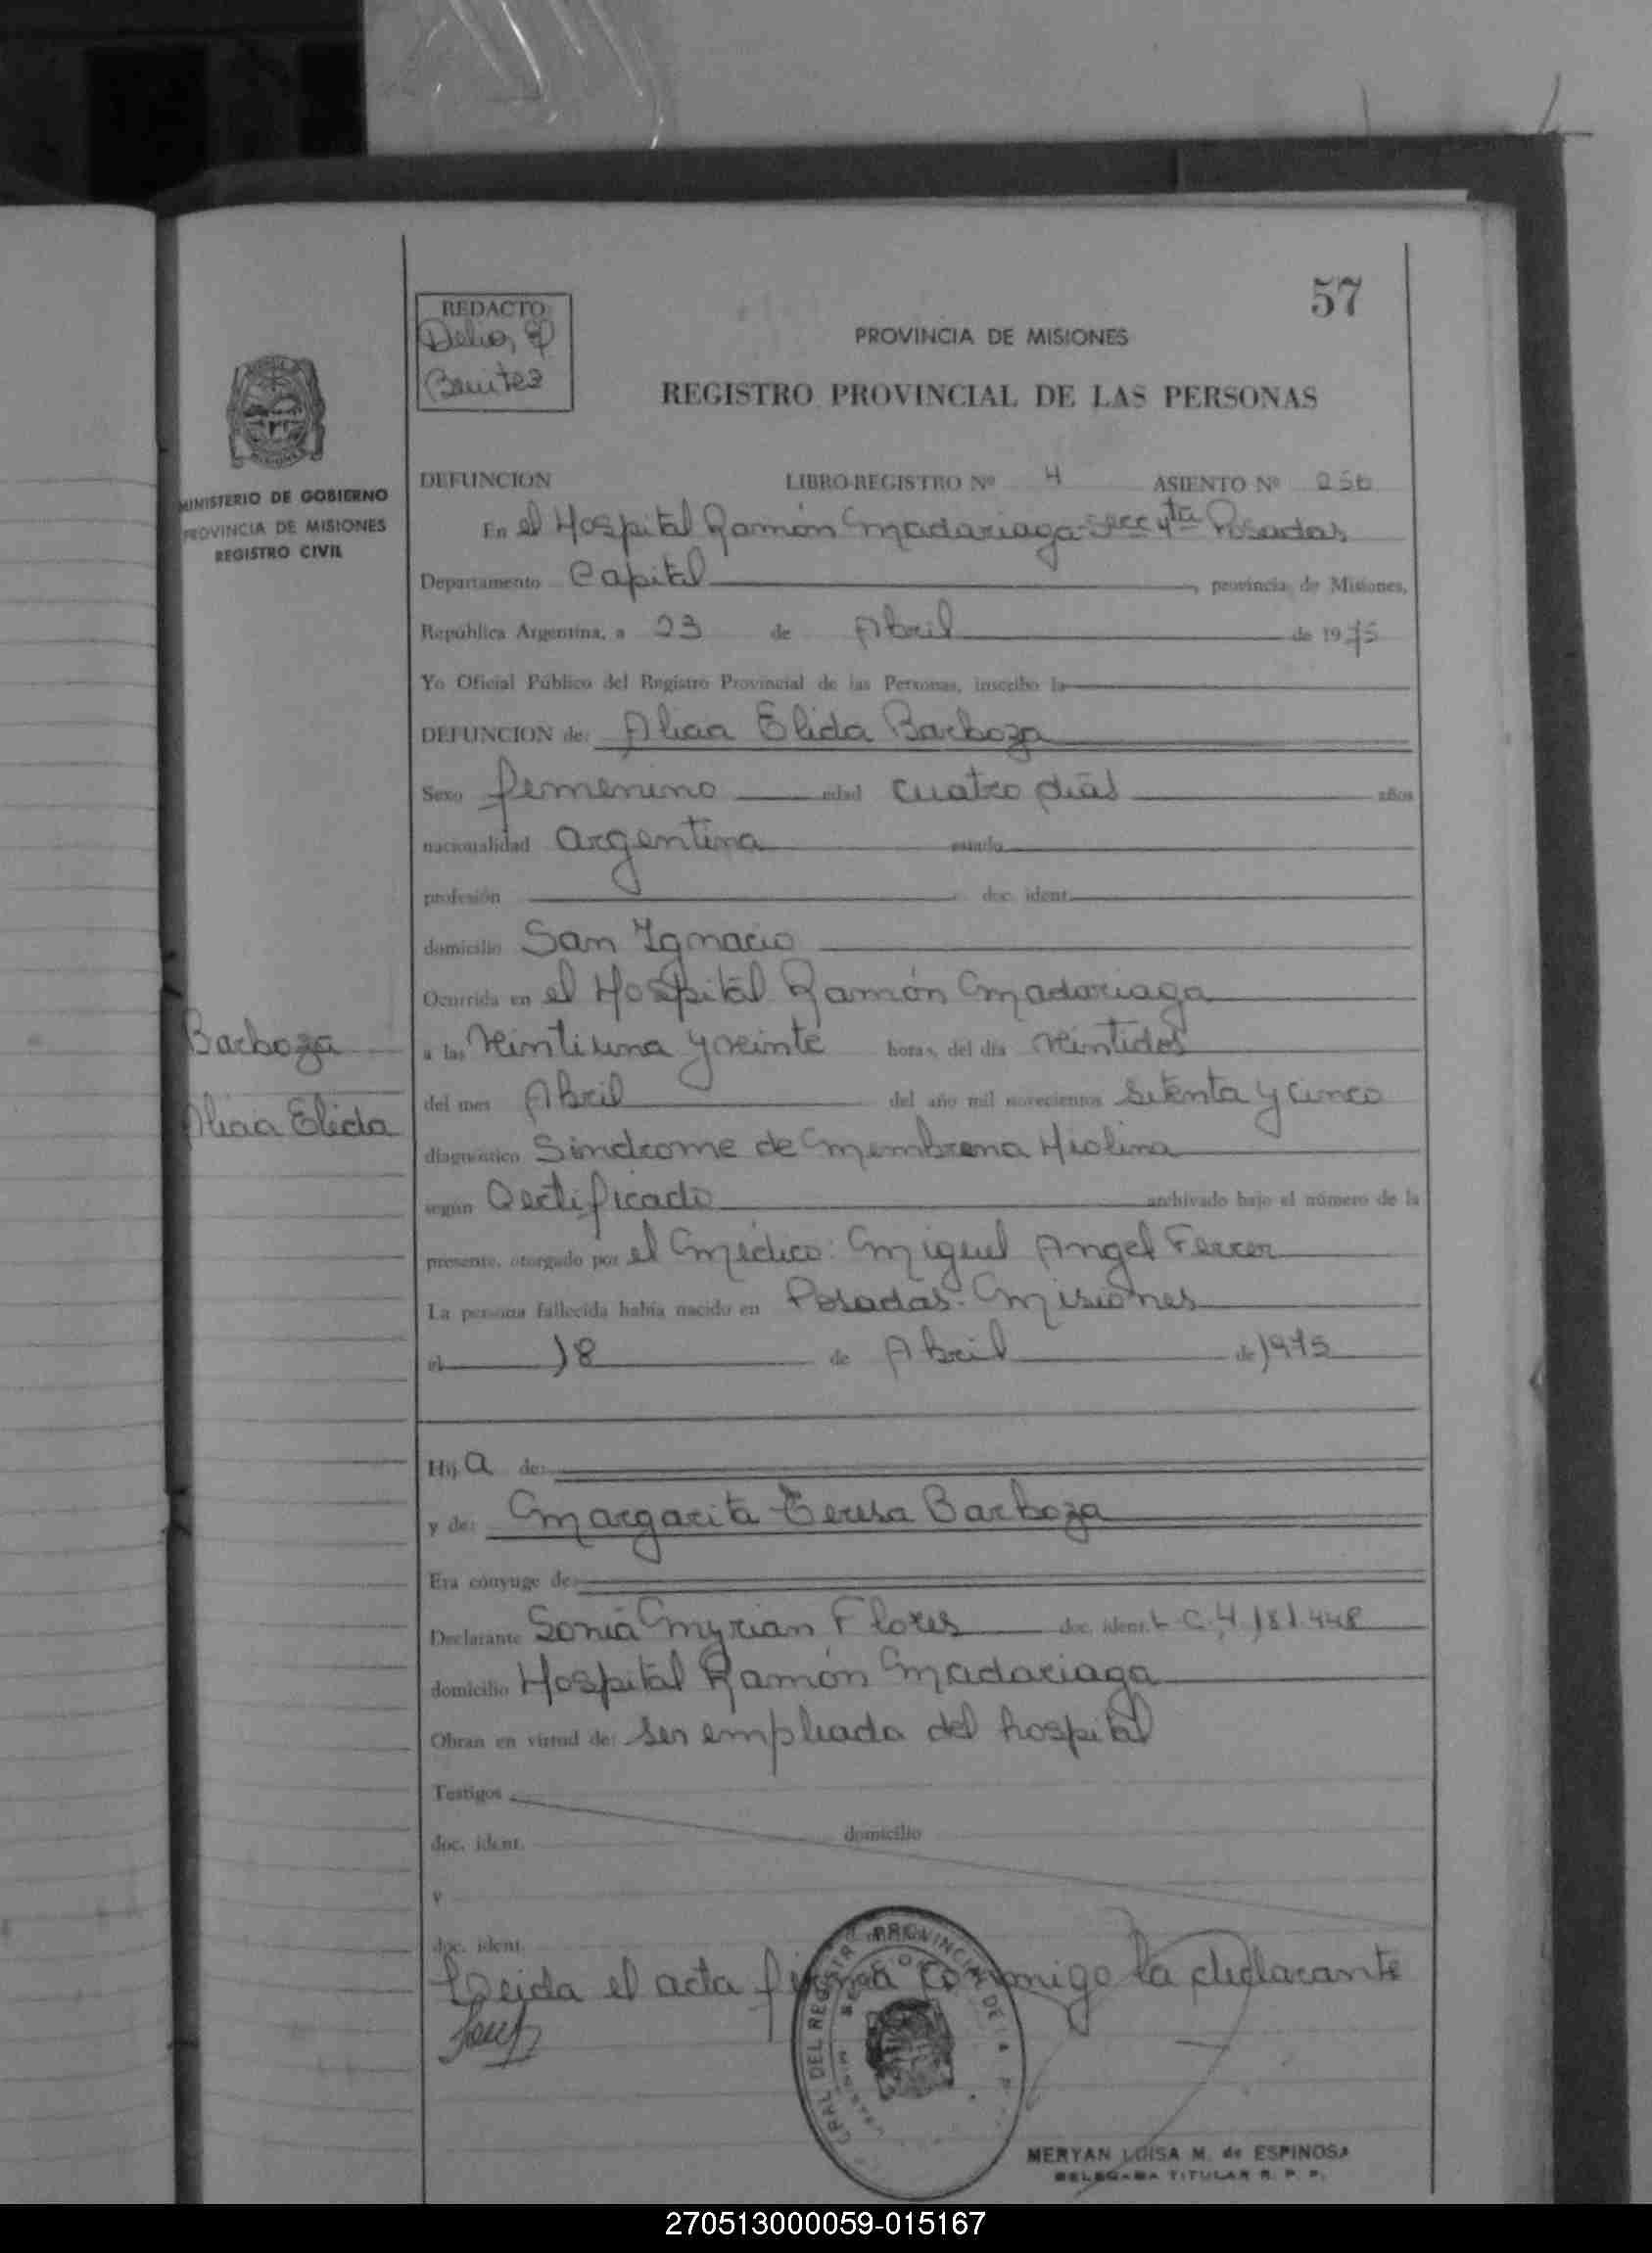 57
REDACTO
Delia, E
Benitez
PROVINCIA DE MISIONES
REGISTRO PROVINCIAL DE LAS PERSONAS
MINISTERIO DE GOBIERNO
PROVINCIA DE MISIONES
REGISTRO CIVIL
DEFUNCION LIBRO-REGISTRO Nº 4 ASIENTO Nº 256
En el Hospital Ramón Madariaga-Secc 4ta Posadas
Departamento Capital, provincia de Misiones,
República Argentina, a 23 de Abril de 1975
Yo Oficial Público del Registro Provincial de las Personas, inscribo la
DEFUNCION de: Alicia Elida Barboza
Sexo femenino edad cuatro días años
nacionalidad argentina estado
profesión doc. ident.
domicilio San Ignacio
Ocurrida en el Hospital Ramón Madariaga
Barboza
a las veintiuna y veinte horas, del día veintidos
Alicia Elida
del mes Abril del año mil novecientos setenta y cinco
diagnóstico Sindrome de Membrana Hialina
según Certificado archivado bajo el número de la
presente, otorgado por el Médico: Miguel Angel Ferrer
La persona fallecida había nacido en Posadas-Misiones
el 18 de Abril de 1975
Hij a de:
y de: Margarita Teresa Barboza
Era cónyuge de:
Declarante Sonia Myrian Flores doc. ident. L C. 4.181.448
domicilio Hospital Ramón Madariaga
Obran en virtud de: ser empleada del hospital
Testigos
doc. ident. domicilio
y
doc. ident.
Leida el acta firma conmigo la declarante
MERYAN LUISA M. de ESPINOSA
DELEGADA TITULAR R. P. P.
270513000059-015167